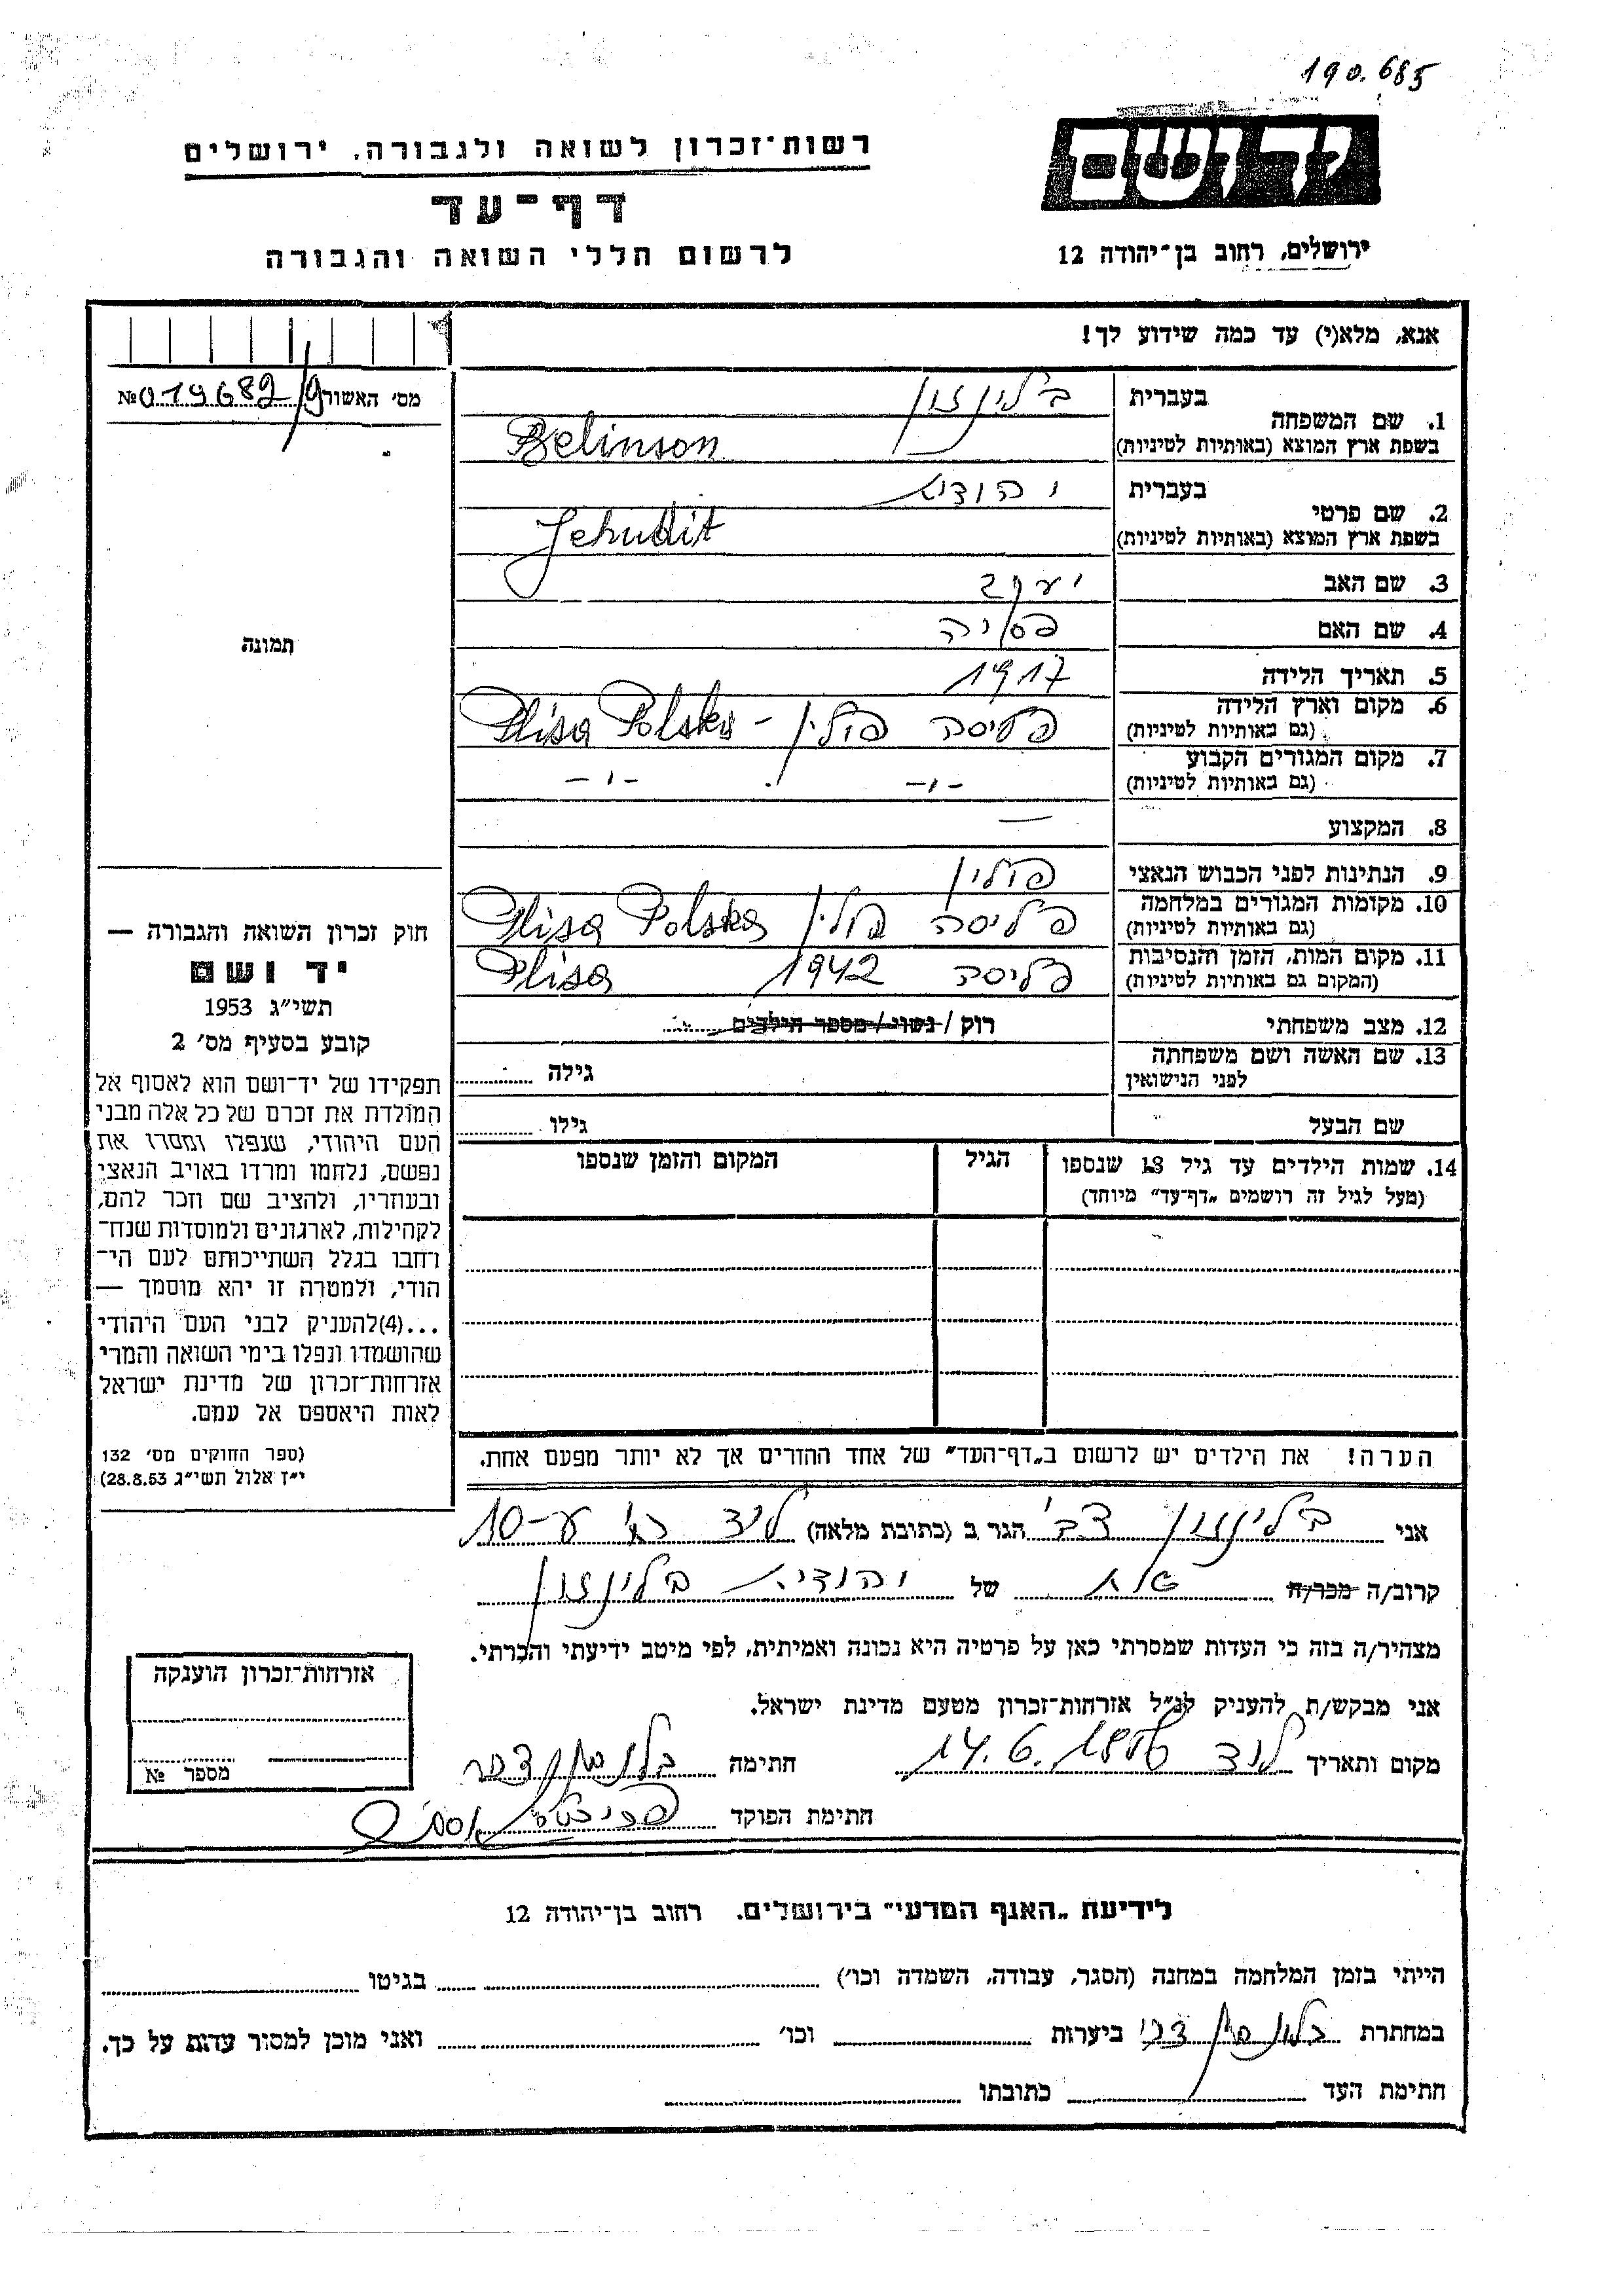 190.685
יד ושם
ירושלים, רחוב בן־יהודה 12
רשות־זכרון לשואה ולגבורה, ירושלים
דף־עד
לרשום חללי השואה והגבורה
אנא, מלא(י) עד כמה שידוע לך!
מס' האשור № 019682/9
תמונה
1. שם המשפחה
בעברית בלינזון
בשפת ארץ המוצא (באותיות לטיניות) Belinson
2. שם פרטי
בעברית יהודית
בשפת ארץ המוצא (באותיות לטיניות) Jehudit
3. שם האב יעקב
4. שם האם
5. תאריך הלידה 1917
6. מקום וארץ הלידה
(גם באותיות לטיניות) פליסה פולין - Plisa Polska
7. מקום המגורים הקבוע
(גם באותיות לטיניות) -ו- -ו-
8. המקצוע —
9. הנתינות לפני הכבוש הנאצי פולין
10. מקומות המגורים במלחמה
(גם באותיות לטיניות) פליסה פולין Plisa Polska
11. מקום המות, הזמן והנסיבות
(המקום גם באותיות לטיניות) פליסה 1942 Plisa
12. מצב משפחתי רוק / נשוי / מספר הילדים
13. שם האשה ושם משפחתה
לפני הנישואין גילה
שם הבעל גילו
14. שמות הילדים עד גיל 18 שנספו הגיל המקום והזמן שנספו
(מעל לגיל זה רושמים „דף־עד" מיוחד)
הערה! את הילדים יש לרשום ב„דף־העד" של אחד ההורים אך לא יותר מפעם אחת.
חוק זכרון השואה והגבורה —
יד ושם
תשי"ג 1953
קובע בסעיף מס' 2
תפקידו של יד־ושם הוא לאסוף אל
המולדת את זכרם של כל אלה מבני
העם היהודי, שנפלו ומסרו את
נפשם, נלחמו ומרדו באויב הנאצי
ובעוזריו, ולהציב שם וזכר להם,
לקהילות, לארגונים ולמוסדות שנח־
רחבו בגלל השתייכותם לעם הי־
הודי, ולמטרה זו יהא מוסמך —
...(4)להעניק לבני העם היהודי
שהושמדו ונפלו בימי השואה והמרי
אזרחות־זכרון של מדינת ישראל
לאות היאספם אל עמם.
(ספר החוקים מס' 132
י"ז אלול תשי"ג 28.8.53)
אני בלינזון צבי הגר ב (כתובת מלאה) לוד 10
קרוב/ה מכר/ה אח של יהודית בלינזון
מצהיר/ה בזה כי העדות שמסרתי כאן על פרטיה היא נכונה ואמיתית, לפי מיטב ידיעתי והכרתי.
אני מבקש/ת להעניק לנ"ל אזרחות־זכרון מטעם מדינת ישראל.
מקום ותאריך לוד 14.6. חתימה
חתימת הפוקד
אזרחות־זכרון הוענקה
מספר №
לידיעת „האגף המדעי" בירושלים, רחוב בן־יהודה 12
הייתי בזמן המלחמה במחנה (הסגר, עבודה, השמדה וכו') בגיטו
במחתרת ביערות וכו' ואני מוכן למסור עדות על כך.
חתימת העד כתובתו